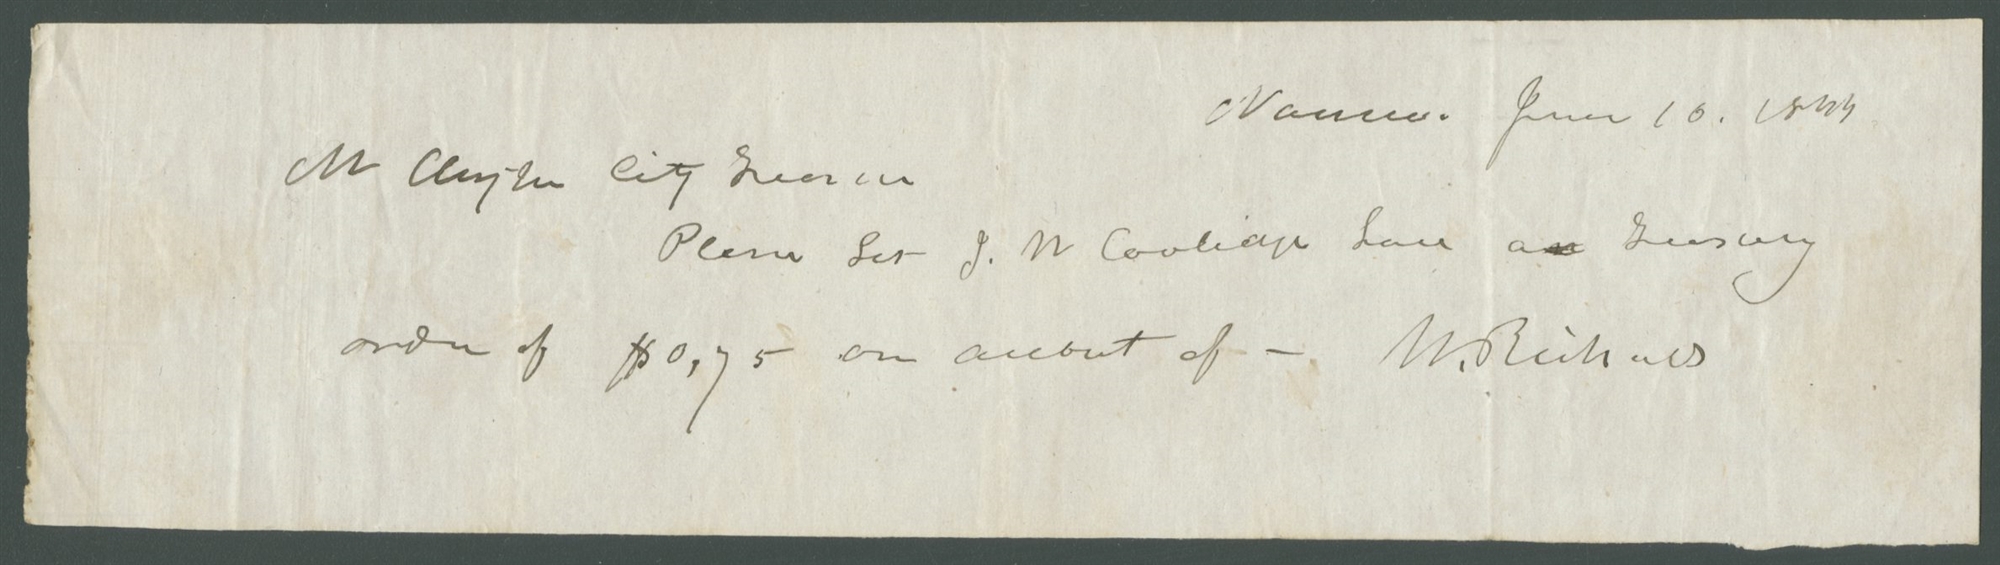 Nauvoo. June 10. 1844
Mr Clayton City Treasurer
Please Let J. W Coolidge have a Treasury
order of $0,75 on account of – W. Richards